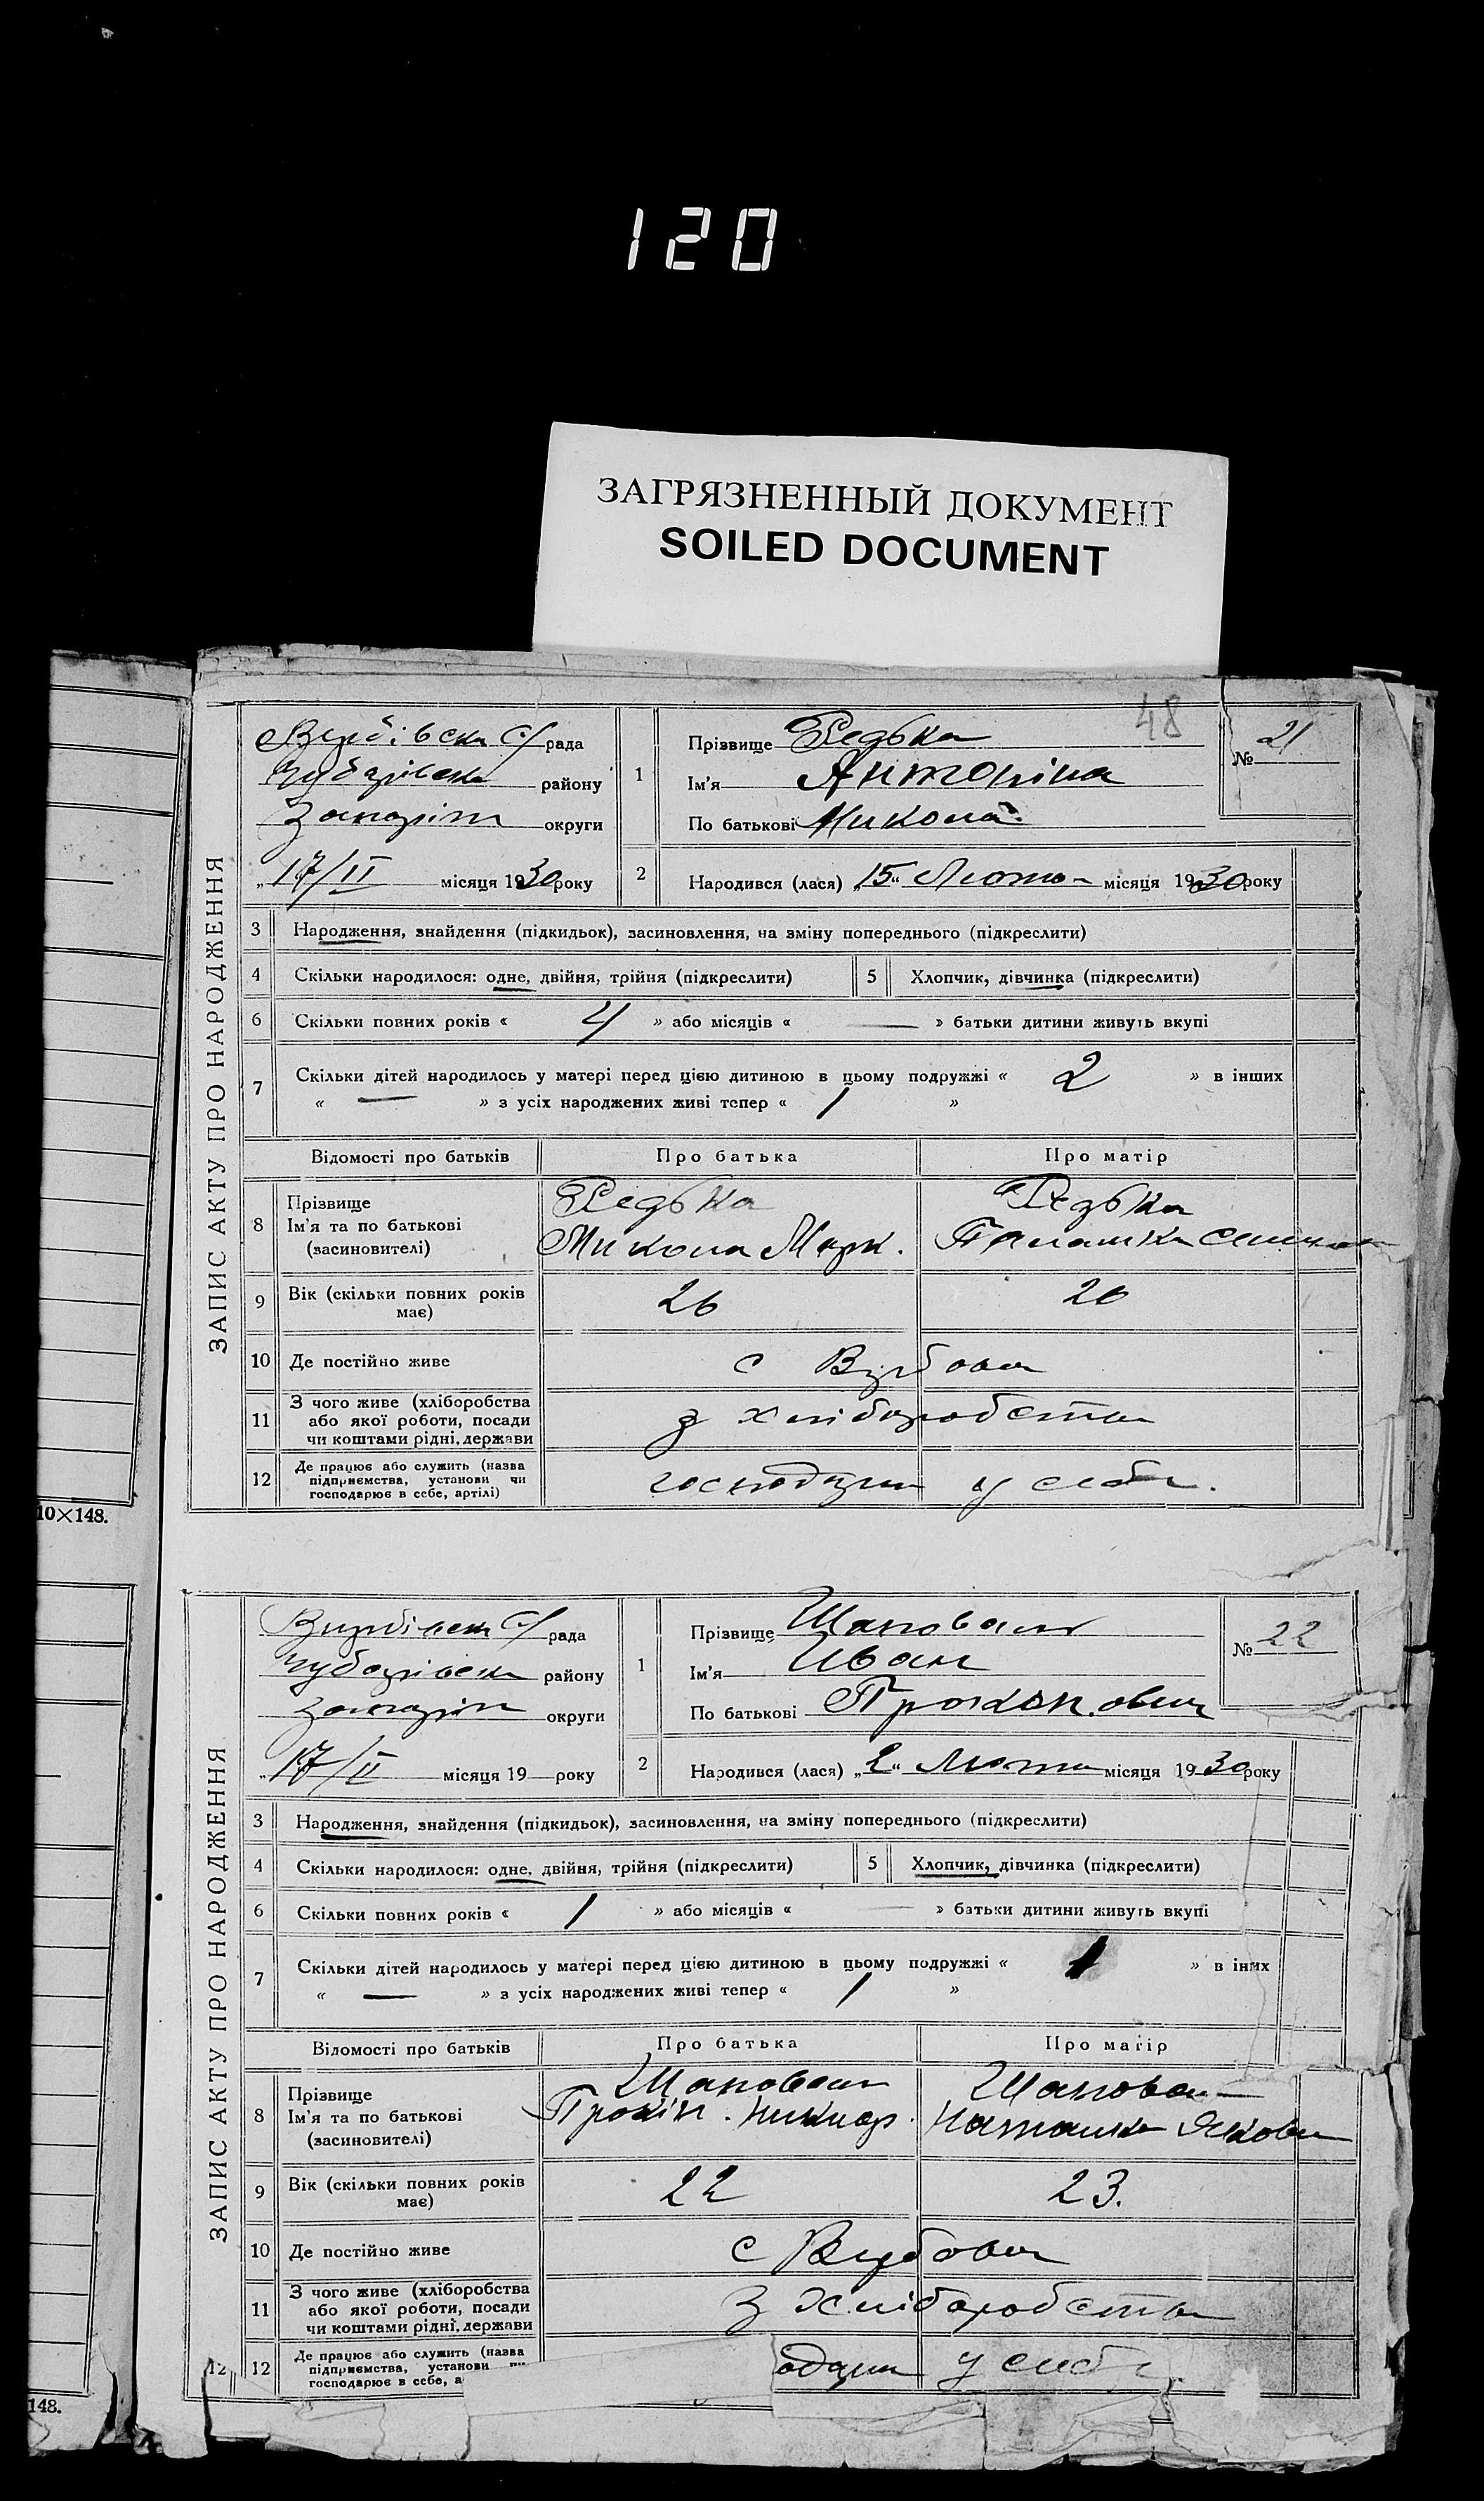 120
ЗАГРЯЗНЕННЫЙ ДОКУМЕНТ
SOILED DOCUMENT
48
10×148.
148.
ЗАПИС АКТУ ПРО НАРОДЖЕННЯ
Вербівськ с/ рада
Чубарівськ району
Запоріж округи
„17/II місяця 1930 року
1
Прізвище Редька
Ім'я Антоніна
По батькові Микола
№ 21
2
Народився (лася) „15“ Лютого місяця 1930 року
3 Народження, знайдення (підкидьок), засиновлення, на зміну попереднього (підкреслити)
4 Скільки народилося: одне, двійня, трійня (підкреслити) 5 Хлопчик, дівчинка (підкреслити)
6 Скільки повних років « 4 » або місяців « — » батьки дитини живуть вкупі
7 Скільки дітей народилось у матері перед цією дитиною в цьому подружжі « 2 » в інших
« — » з усіх народжених живі тепер « 1 »
Відомості про батьків Про батька Про матір
8 Прізвище
Ім'я та по батькові
(засиновителі)
Редька
Микола Марк.
Редька
Палашка
9 Вік (скільки повних років
має)
26 26
10 Де постійно живе с Вербова
11 З чого живе (хліборобства
або якої роботи, посади
чи коштами рідні, держави
з хліборобства
12 Де працює або служить (назва
підприємства, установи чи
господарює в себе, артілі)
господарь у себе.
ЗАПИС АКТУ ПРО НАРОДЖЕННЯ
Вербівськ с/ рада
Чубарівськ району
Запоріж округи
„17/II місяця 19 — року
1
Прізвище Шаповал
Ім'я Иван
По батькові Прокопович
№ 22
2
Народився (лася) „2“ Лютого місяця 1930 року
3 Народження, знайдення (підкидьок), засиновлення, на зміну попереднього (підкреслити)
4 Скільки народилося: одне, двійня, трійня (підкреслити) 5 Хлопчик, дівчинка (підкреслити)
6 Скільки повних років « 1 » або місяців « — » батьки дитини живуть вкупі
7 Скільки дітей народилось у матері перед цією дитиною в цьому подружжі « 1 » в інших
« — » з усіх народжених живі тепер « 1 »
Відомості про батьків Про батька Про матір
8 Прізвище
Ім'я та по батькові
(засиновителі)
Шаповал
Прокіп. Никиф.
Шаповал
Наталка Якови
9 Вік (скільки повних років
має)
22 23.
10 Де постійно живе с Вербова
11 З чого живе (хліборобства
або якої роботи, посади
чи коштами рідні, держави
з хліборобства
12 12 Де працює або служить (назва
підприємства, установи
господарює в себе, а
одарь у себе.